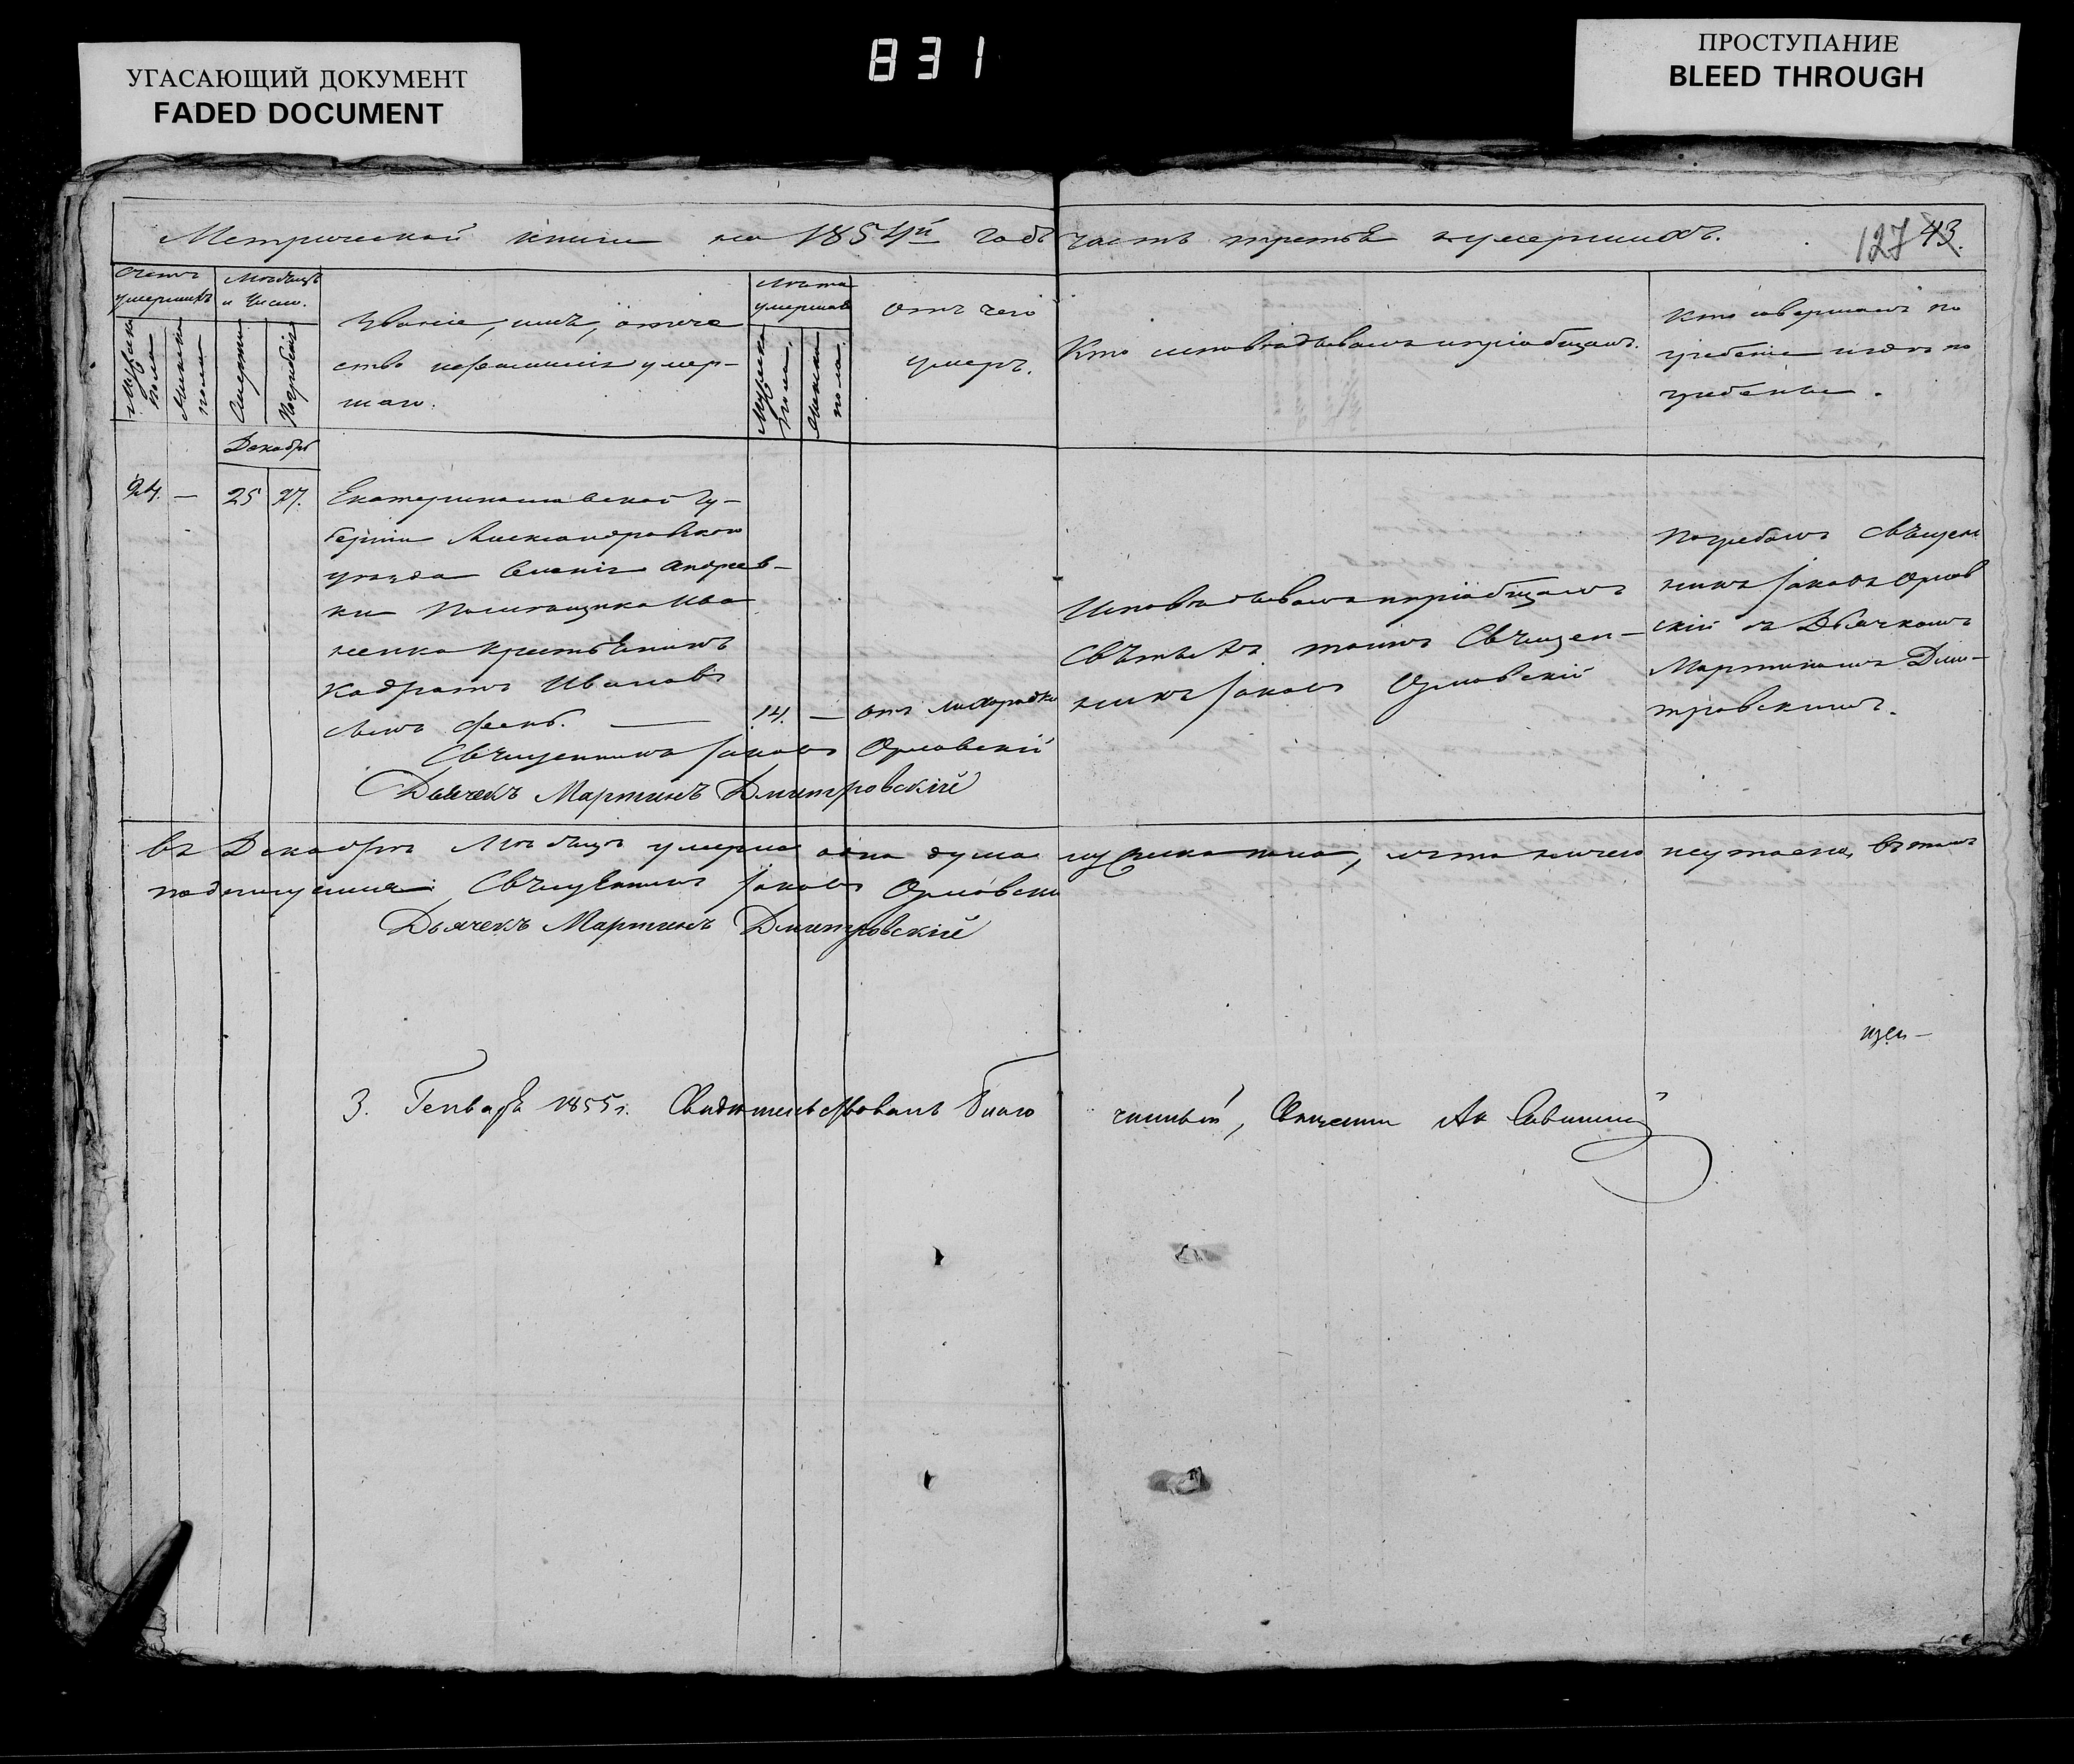 УГАСАЮЩИЙ ДОКУМЕНТ
FADED DOCUMENT
831
ПРОСТУПАНИЕ
BLEED THROUGH
Метрической книги на 1854й годъ часть третья о умершихъ.
127 43.
Счетъ умершихъ
Мужеска пола
Женска пола
Мѣсяцъ и Число.
Смерти
Погребенія
Званіе, имя, отече
ство и фамилія умер-
шаго.
Лѣта умершаго
Мужеска пола.
Женска пола.
отъ чего
умеръ.
Кто исповѣдывалъ и пріобщалъ.
Кто совершалъ по
гребеніе и гдѣ по
гребены.
Декабрь
24. — 25 27.
Екатеринославской Гу-
берніи Александровскаго
уѣзда Селенія Андреев-
ки Помѣщика Ива
ненка Крестьянинъ
Кодратъ Ивановъ
сынъ
14. — отъ лихорадки
Исповѣдывалъ и пріобщалъ
Священ-
никъ Іаковъ Орловскій
Погребалъ Священ
никъ Іаковъ Орлов
скій съ Дьячкомъ
Мартиномъ Дми-
тровскимъ.
Священникъ Іаковъ Орловскій
Дьячекъ Мартинъ Дмитровскій
въ Декабрѣ Мѣсяцѣ умерла одна душа мужеска пола, что ничего не утаено, въ томъ
подпишемся: Священникъ Іаковъ Орловскій
Дьячекъ Мартинъ Дмитровскій
3. Генваря 1855 г. Свидетельствовалъ Благо
чинный, Священник Ак Савицкій